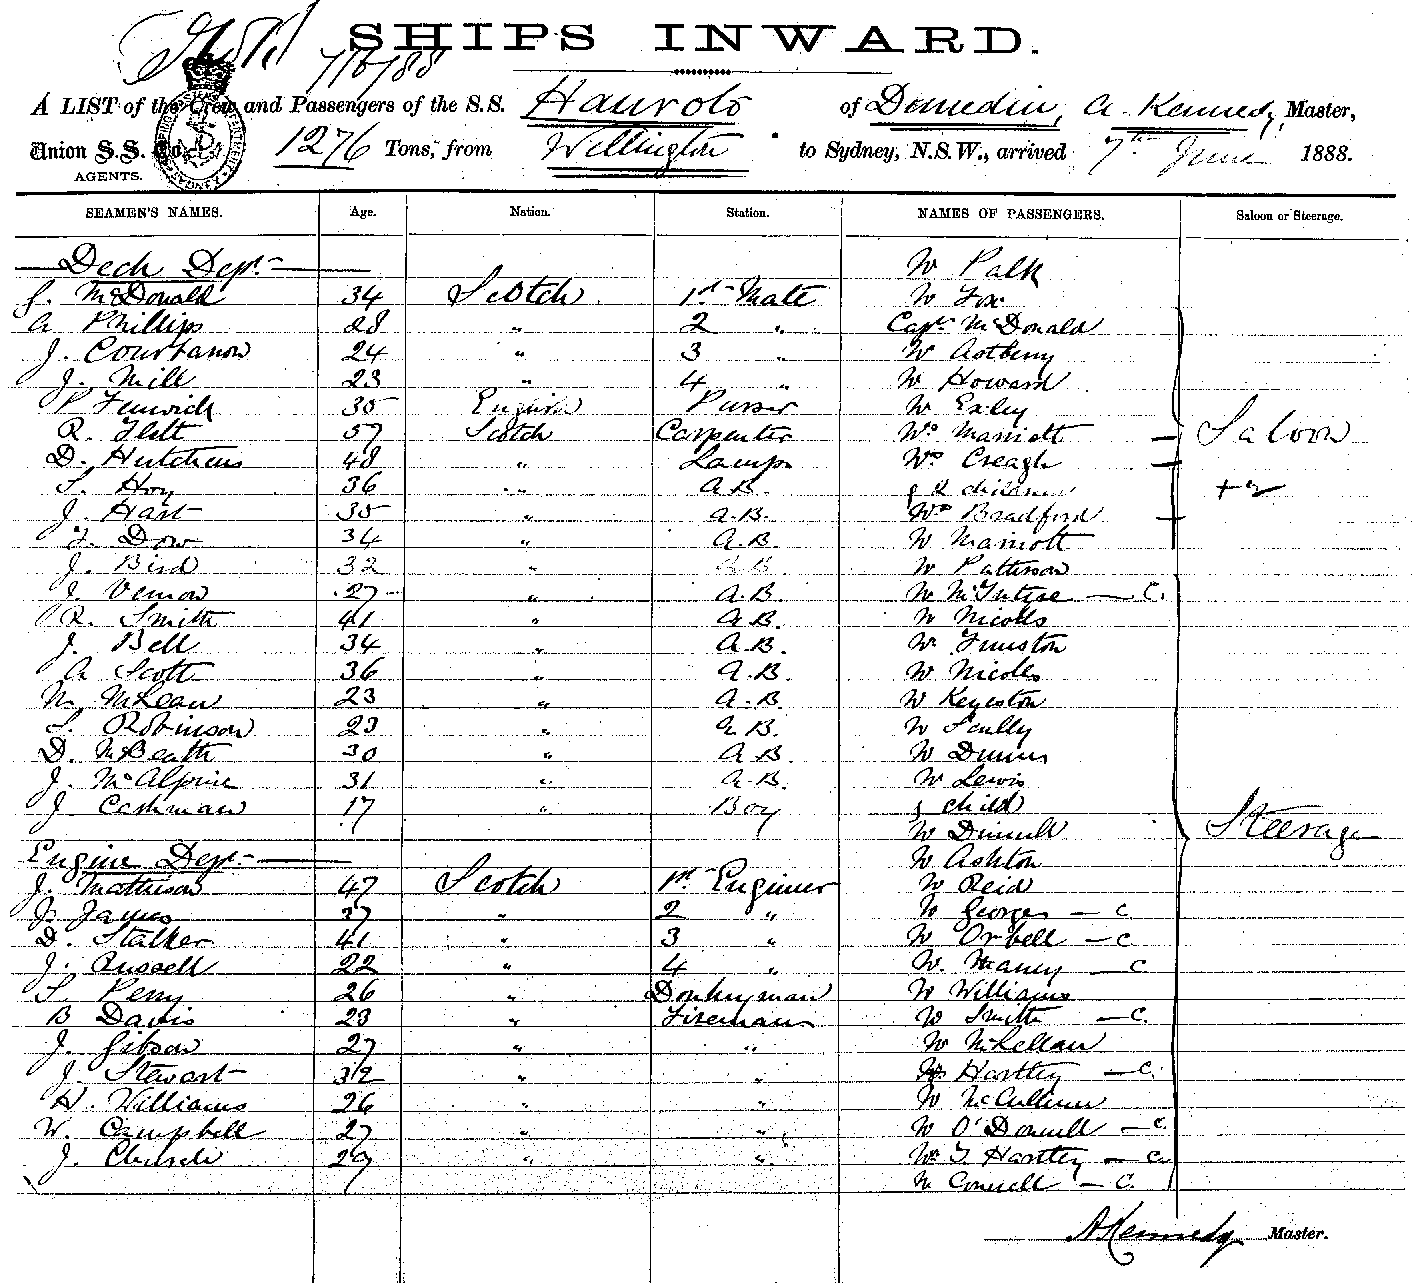 SHIPS INWARD.
7/6/88
A LIST of the Crew and Passengers of the S.S. Hauroto of Dunedin, A. Kennedy, Master,
Union S.S. Co. 1276 Tons, from Wellington to Sydney, N.S.W., arrived 7th June 1888.
AGENTS.
SEAMEN'S NAMES. Age. Nation. Station. NAMES OF PASSENGERS. Saloon or Steerage.
Deck Dept. Mr Palk
McDonald 34 Scotch 1st Mate Mr Fox
A Phillips 28 " 2 " Capt McDonald
J. 24 " 3 " Mr Astbery
J. Mill 23 " 4 " Mr Howard
P Fenwick 35 English Purser Mr Exley
R. Flett 57 Scotch Carpenter Mrs Marriott — Saloon
D. Hutchens 48 " Lamps Mrs Creagh —
S. Hoy 36 " A.B. & 2 children + 2
J. Hart 35 " A.B. Mrs Bradford —
Dow 34 " A.B. Mr Marriott
J. Bird 32 " A.B. Mr Patterson
J. Vernon 27 " A.B. Mr McIntyre — C.
R. Smith 41 " A.B. Mr Nicolls
J. Bell 34 " A.B. Mr Funston
A Scott 36 " A.B. Mr Nicolls
N. McLean 23 " A.B. Mr Keyeston
S. Robinson 23 " A.B. Mr Scully
D. McBeath 30 " A.B. Mr
J. McAlpine 31 " A.B. Mr Lewis
J Cashman 17 " Boy & child
Mr Steerage
Engine Dept. Mr Ashton
J. Mathieson 47 Scotch 1st Engineer Mr Reid
J. James 37 " 2 " Mr Georges — C
D. Stalker 41 " 3 " Mr Orbell — C
J. Russell 22 " 4 " Mr Heaney — C
S Perry 26 " Donkeyman Mr Williams
B Davis 23 " Fireman Mr Smith — C.
J. Gibson 27 " " Mr McLellan
J. Stewart 32 " " Mrs Hartley — C.
H. Williams 26 " " Mr McCullum
W. Campbell 27 " " Mr O'Donnell — C.
J. Church 29 " " Mr T. Hartley — C.
Mr Connell — C.
A Kennedy Master.